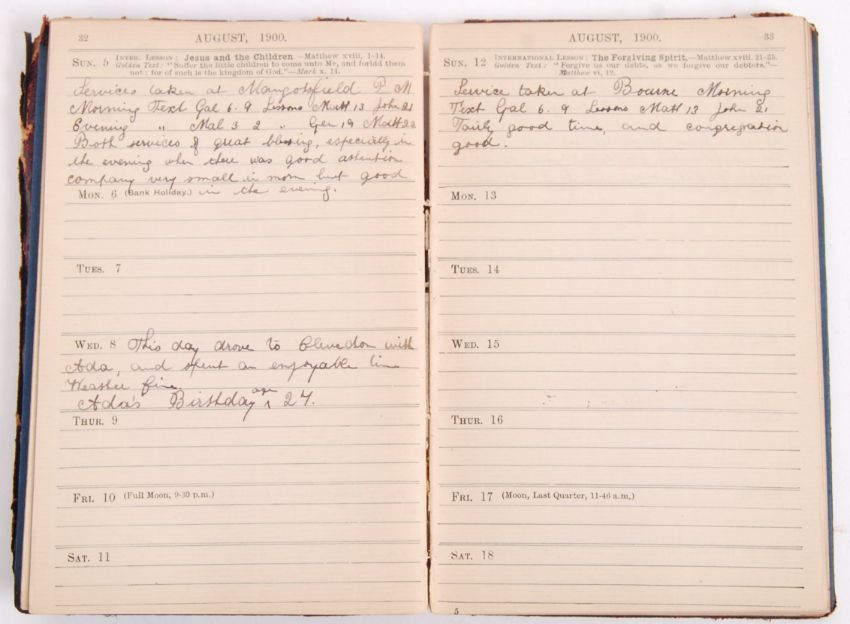 32
AUGUST, 1900.
SUN. 5 INTER. LESSON: Jesus and the Children —Matthew xviii, 1-14.
Golden Text: "Suffer the little children to come unto Me, and forbid them
not: for of such is the kingdom of God."—Mark x. 14.
Services taken at Mangotsfield P M
Morning Text Gal 6. 9 Lessons Matt 13 John 21
Evening " Mal 3 2 " Gen 19 Matt
Both services of great blessing, especially in
the evening when there was good attention
company very small in morn but good
MON. 6 (Bank Holiday.) in the evening.
TUES. 7
WED. 8 This day drove to Clevedon with
Ada, and spent an enjoyable time
Weather fine.
Ada's Birthday age 27.
THUR. 9
FRI. 10 (Full Moon, 9-30 p.m.)
SAT. 11
AUGUST, 1900.
33
SUN. 12 INTERNATIONAL LESSON: The Forgiving Spirit,—Matthew xviii. 21-35.
Golden Text: "Forgive us our debts, as we forgive our debtors."—
Matthew vi. 12.
Service taken at Bourne Morning
Text Gal 6. 9 Lessons Matt 13 John 21
Fairly good time, and congregation
good.
MON. 13
TUES. 14
WED. 15
THUR. 16
FRI. 17 (Moon, Last Quarter, 11-46 a.m.)
SAT. 18
5